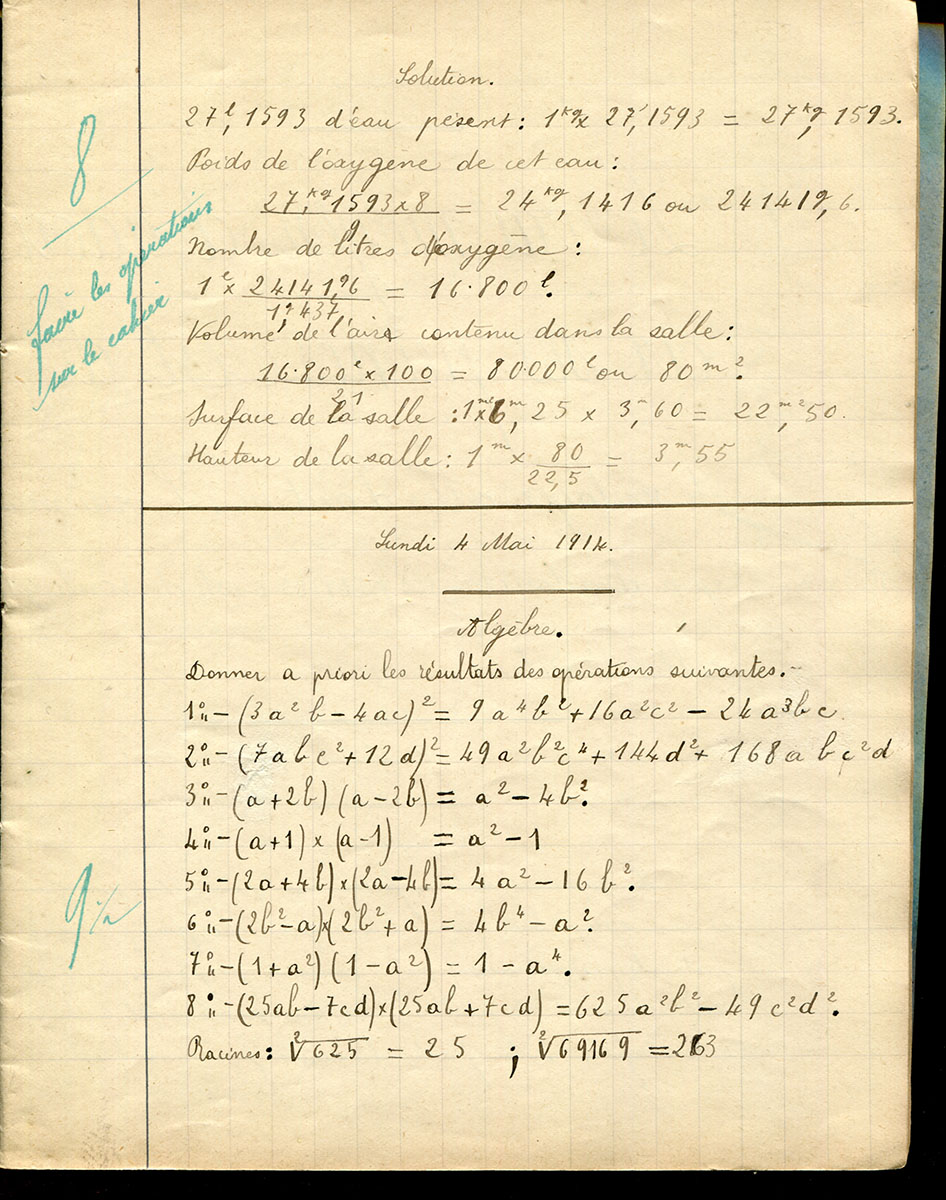 Solution.
27l,1593 d'eau pèsent : 1kg x 27,1593 = 27kg,1593.
8
Poids de l'oxygène de cet eau :
27,kg1593x8 / 9 = 24kg,1416 ou 24141g,6.
faire les opérations
sur le cahier
Nombre de litres d'oxygène :
1l x 24141,g6 / 1g,437 = 16.800l.
Volume de l'air contenu dans la salle :
16.800l x 100 / 21 = 80.000l ou 80m2.
Surface de la salle : 1m2 x 6m,25 x 3m,60 = 22m2,50.
Hauteur de la salle : 1m x 80 / 22,5 = 3m,55
Lundi 4 Mai 1914.
Algèbre.
Donner a priori les résultats des opérations suivantes.-
1°- (3a²b - 4ac)² = 9a⁴b² + 16a²c² - 24a³bc
2°- (7abc² + 12d)² = 49a²b²c⁴ + 144d² + 168abc²d
3°- (a+2b) (a-2b) = a² - 4b².
4°- (a+1) x (a-1) = a² - 1
5°- (2a+4b) x (2a-4b) = 4a² - 16b².
9 1/2
6°- (2b²-a) x (2b²+a) = 4b⁴ - a².
7°- (1+a²) (1-a²) = 1 - a⁴.
8°- (25ab-7cd) x (25ab+7cd) = 625a²b² - 49c²d².
Racines : ²√625 = 25 ; ²√69169 = 263